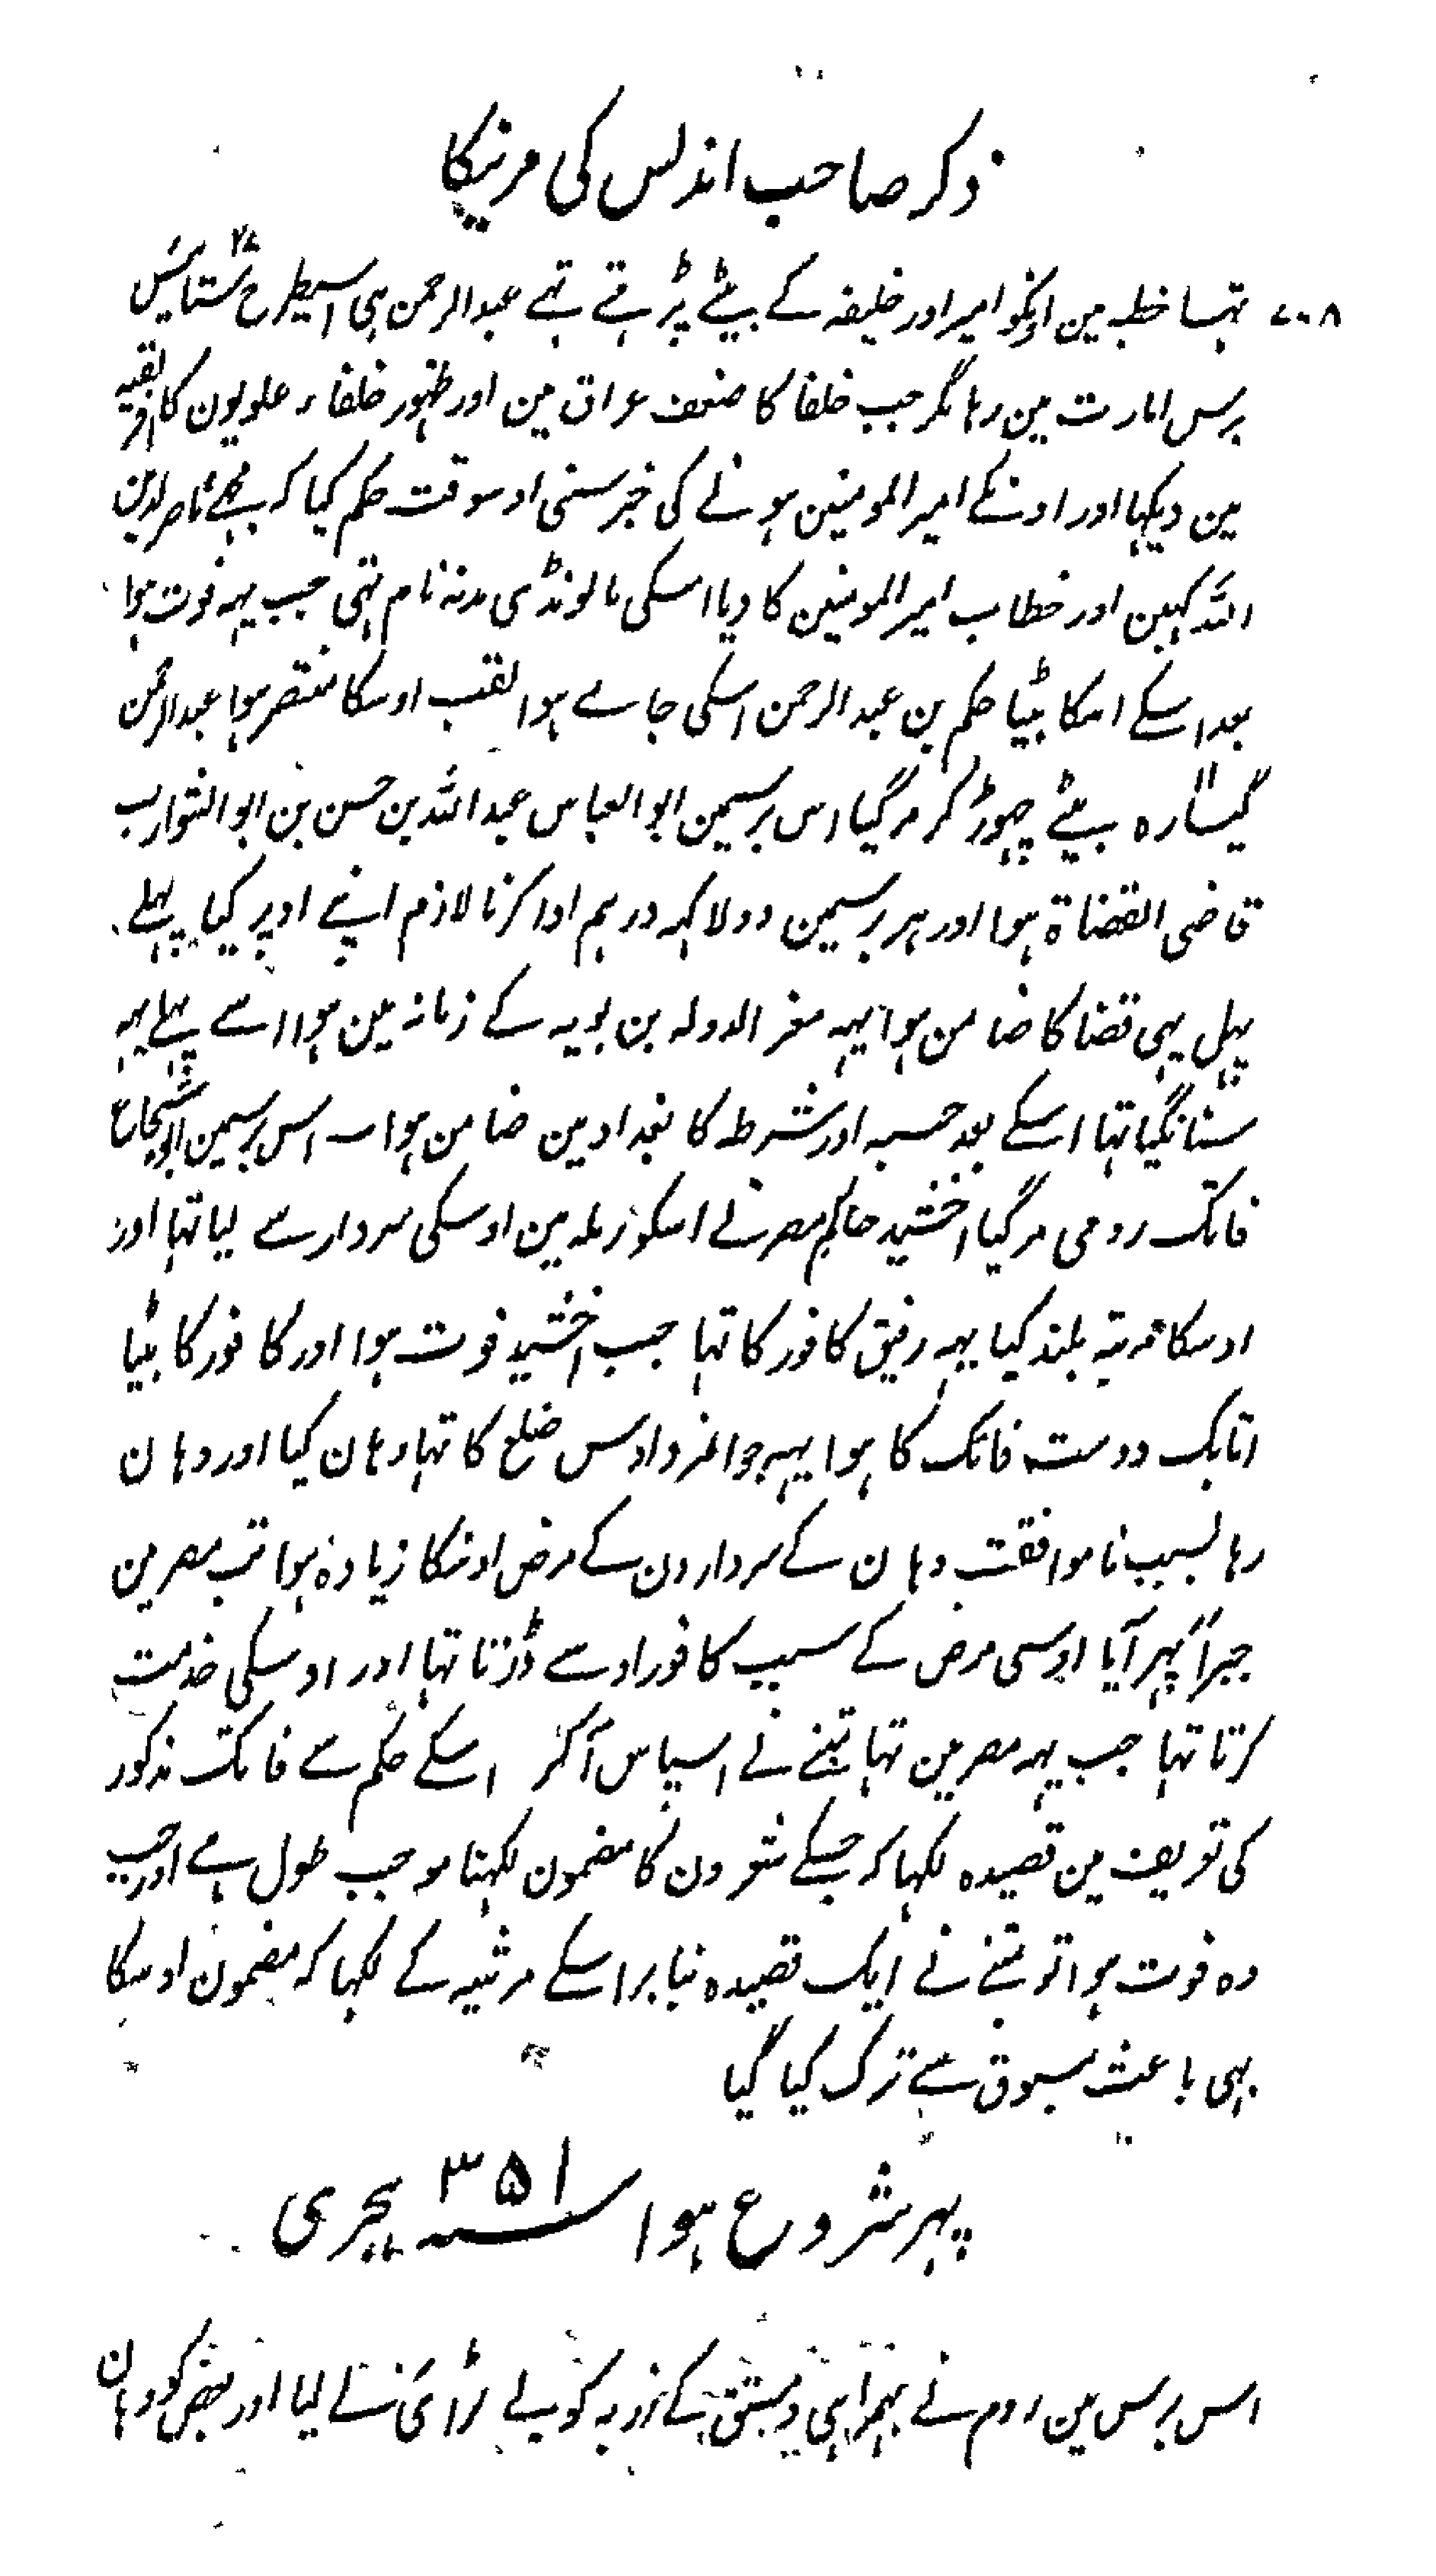 ذکر صاحب اندلس کی مرنیکا
۷۰۸ تہا خطبہ مین اونکو امیر اور خلیفہ کے بیٹے پڑہتے تہے عبدالرحمن بہی اسیطرح ستائیس ۲۷
برس امارت مین رہا مگر جب خلفا کا ضعف عراق مین اور ظہور خلفاء علویون کا افریقیہ
مین دیکہا اور اونکے امیر المومنین ہونے کی خبر سنی اوسوقت حکم کیا کہ مجھے ناصر لدین
اللہ کہین اور خطاب امیر المومنین کا دیا اسکی ما لونڈی مدنہ نام تہی جب یہہ فوت ہوا
بعد اسکے اسکا بیٹا حکم بن عبدالرحمن اسکی جاے ہوا لقب اوسکا منتصر ہوا عبدالرحمن
گیسارہ ۱۱ بیٹے چہوڑ کر مر گیا اس برسیمن ابو العباس عبد اللہ بن حسن بن ابو الشوارب
قاضی القضاة ہوا اور ہر برسیمن دو لاکہہ درہم ادا کرنا لازم اپنے اوپر کیا پہلے
پہل یہی قضا کا ضامن ہوا یہہ معز الدولہ بن بویہ کے زمانہ مین ہوا اسے پہلے یہہ
سنا نگیا تہا اسکے بعد حسبہ اور شرطہ کا بغداد مین ضامن ہوا اس برسیمن ابو شجاع
فاتک رومی مر گیا اخشید حاکم مصر نے اسکو رملہ مین اوسکی سردار سے لیا تہا اور
اوسکا مرتبہ بلند کیا یہہ رفیق کافور کا تہا جب اخشید فوت ہوا اور کافور کا بیٹا
اتابک دوست فاتک کا ہوا یہہ جوانمرد اوس ضلع کا تہا وہان گیا اور وہان
رہا بسبب ناموافقت وہان کے سردارون کے مرض اوسکا زیادہ ہوا تب مصر مین
جبراً پہر آیا اوسی مرض کے سبب کافور اوسے ڈرتا تہا اور اوسکی خدمت
کرتا تہا جب یہہ مصر مین تہا متبنے نے اسپاس آکر اسکے حکم سے فاتک مذکور
کی تعریف مین قصیدہ لکہا کہ جسکے شعرون کا مضمون لکہنا موجب طول ہے اور جب
وہ فوت ہوا تو متبنے نے ایک قصیدہ بنا بر اسکے مرثیہ کے لکہا کہ مضمون اوسکا
بہی باعث مسبوق سے ترک کیا گیا
پہر شروع ہوا سنہ ۳۵۱ ہجری
اس برس مین روم نے بہمراہی دمستق کے عین زربہ کو بے لڑائی کے لے لیا اور بعض کو وہان